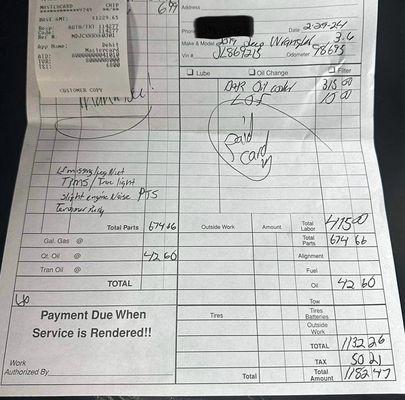 MASTERCARD CHIP
DUST AMT: $1229.65
Resp: AUTH/TKT 114277
Code: 114277
App Name: Debit
Mastercard
AID: A0000000041010
TVR: 8000008000
TSI: 6800
CUSTOMER COPY
699
Address
Phone
Date 2-29-24
Make & Model 2019 Jeep Wrangler 3.6
Vin # JL869215
Odometer 98695
Lube Oil Change Filter
D&R Oil cooler 315 00
LOF
Paid
card
TPMS / Trac light
slight engine Noise PTS
Total Parts 674 66
Outside Work Amount
Total Labor 415 00
Total Parts 674 66
Gal. Gas @
Alignment
Fuel
Qt. Oil @ 42 60
Oil 42 60
Tran Oil @
TOTAL
Tow
Payment Due When
Service is Rendered!!
Tires
Tires
Batteries
Outside
Work
TOTAL 1132 26
TAX 50 21
Work
Authorized By
Total
Total
Amount 1182 47